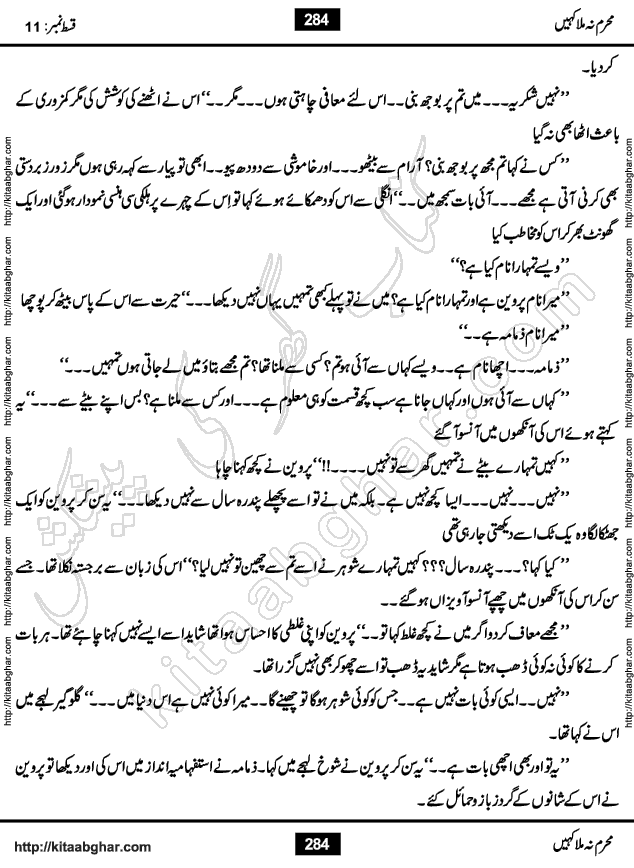 محرم نہ ملا کہیں
284
قسط نمبر: 11
کردیا۔
”نہیں شکریہ۔۔۔ میں تم پر بوجھ بنی۔۔ اس لئے معافی چاہتی ہوں۔۔۔ مگر۔۔“ اس نے اٹھنے کی کوشش کی مگر کمزوری کے
باعث اٹھا بھی نہ گیا
”کس نے کہا تم مجھ پر بوجھ بنی؟ آرام سے بیٹھو۔۔۔ اور خاموشی سے دودھ پیو۔۔ ابھی تو پیار سے کہہ رہی ہوں مگر زور زبردستی
بھی کرنی آتی ہے مجھے۔۔۔ آئی بات سمجھ میں۔۔“ انگلی سے اس کو دھمکاتے ہوئے کہا تو اِس کے چہرے پر ہلکی سی ہنسی نمودار ہوگئی اور ایک
گھونٹ بھر کر اس کو مخاطب کیا
”ویسے تمہارا نام کیا ہے؟“
”میرا نام پروین ہے اور تمہارا نام کیا ہے؟ میں نے تو پہلے کبھی تمہیں یہاں نہیں دیکھا۔۔۔“ حیرت سے اس کے پاس بیٹھ کر پوچھا
”میرا نام ذمامہ ہے۔۔“
”ذمامہ۔۔۔ اچھا نام ہے۔۔ ویسے کہاں سے آئی ہو تم؟ کسی سے ملنا تھا؟ تم مجھے بتاؤ میں لے جاتی ہوں تمہیں۔۔۔“
”کہاں سے آئی ہوں اور کہاں جانا ہے سب کچھ قسمت کو ہی معلوم ہے۔۔۔ اور کس سے ملنا ہے؟ بس اپنے بیٹے سے۔۔۔“ یہ
کہتے ہوئے اس کی آنکھوں میں آنسو آگئے
”کہیں تمہارے بیٹے نے تمہیں گھر سے تو نہیں۔۔۔۔!!“ پروین نے کچھ کہنا چاہا
”نہیں۔۔۔ نہیں۔۔۔ ایسا کچھ نہیں ہے۔ بلکہ میں نے تو اسے پچھلے پندرہ سال سے نہیں دیکھا۔۔۔“ یہ سن کر پروین کو ایک
جھٹکا لگا وہ یک ٹک اسے دیکھتی جارہی تھی
”کیا کہا؟۔۔۔ پندرہ سال؟؟؟ کہیں تمہارے شوہر نے اسے تم سے چھین تو نہیں لیا؟“ اس کی زبان سے برجستہ نکلا تھا۔ جسے
سن کر اس کی آنکھوں میں چھپے آنسو آویزاں ہوگئے۔۔
”مجھے معاف کردو اگر میں نے کچھ غلط کہا تو۔۔“ پروین کو اپنی غلطی کا احساس ہوا تھا شاید اسے ایسے نہیں کہنا چاہئے تھا۔ ہر بات
کرنے کا کوئی نہ کوئی ڈھب ہوتا ہے مگر شاید یہ ڈھب تو اسے چھو کر بھی نہیں گزرا تھا۔
”نہیں۔۔ ایسی کوئی بات نہیں ہے۔۔ جس کو کوئی شوہر ہوگا تو چھینے گا۔۔ میرا کوئی نہیں ہے اس دنیا میں۔۔۔“ گلوگیر لہجے میں
اس نے کہا تھا۔
”یہ تو اور بھی اچھی بات ہے۔۔“ یہ سن کر پروین نے شوخ لہجے میں کہا۔ ذمامہ نے استفہامیہ انداز میں اس کی اور دیکھا تو پروین
نے اس کے شانوں کے گرد زبازو حمائل کئے۔
http://kitaabghar.com http://kitaabghar.com http://kitaabghar.com http://kitaabghar.com http://kitaabghar.com http://kitaabghar.com
http://kitaabghar.com http://kitaabghar.com http://kitaabghar.com http://kitaabghar.com http://kitaabghar.com http://kitaabghar.com
کتاب گھر کی پیشکش
kitaabghar.com
محرم نہ ملا کہیں
284
http://kitaabghar.com